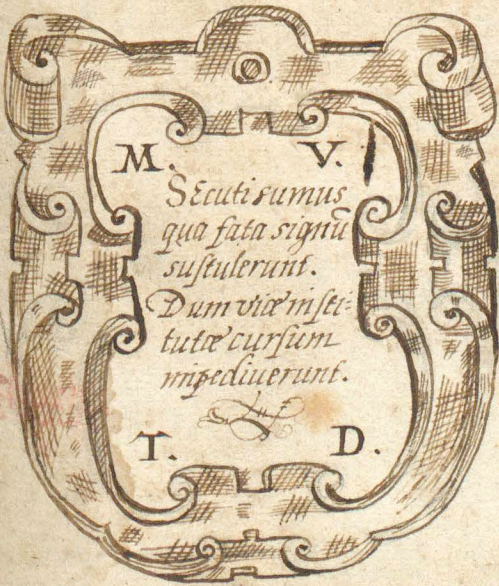 M. V.
Secuti sumus
qua fata signū
sustulerunt.
Dum vitæ insti-
tutæ cursum
impediuerunt.
T. D.